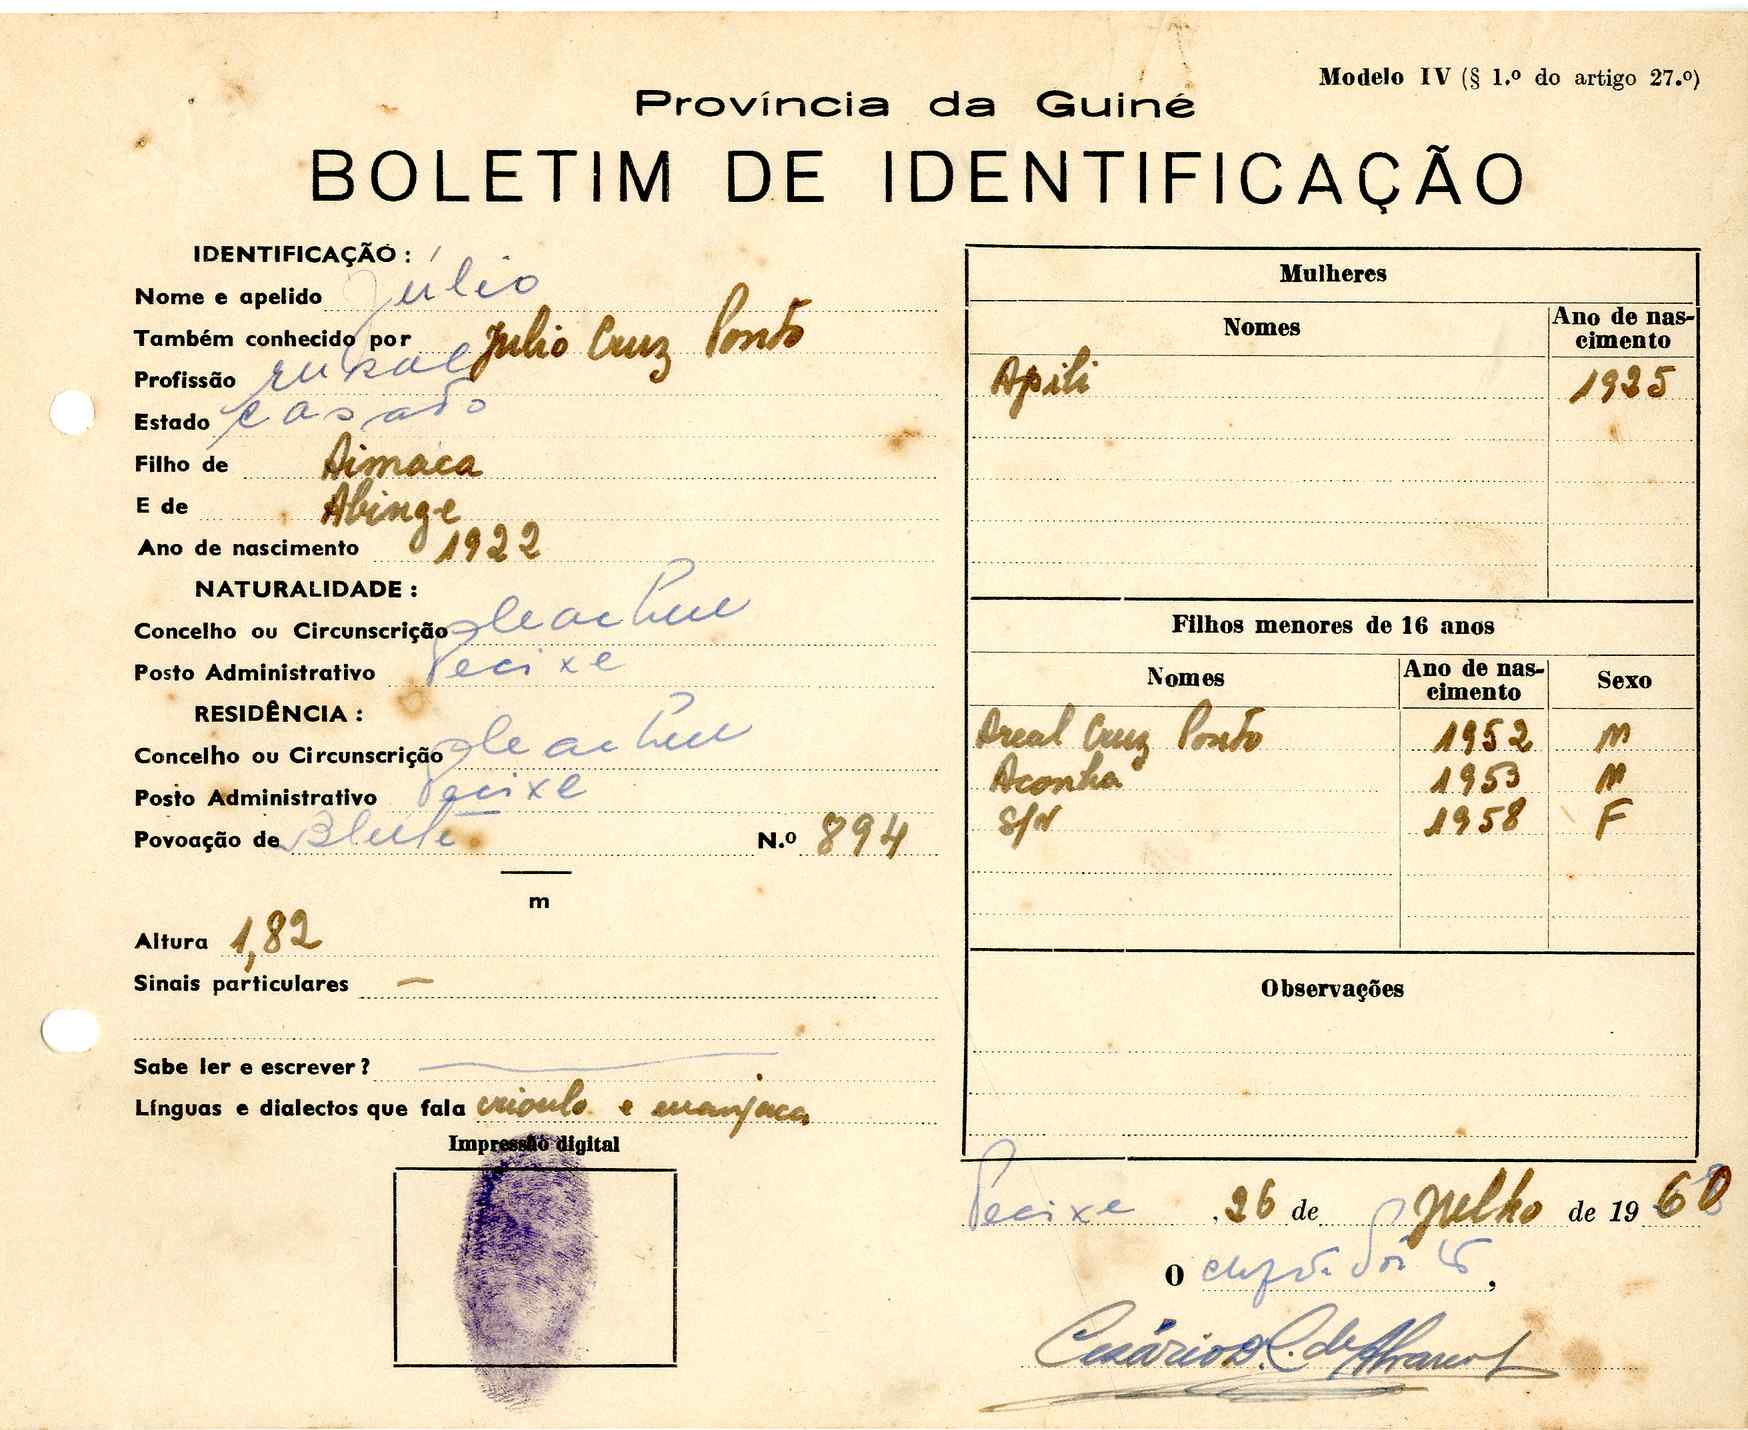 Modelo IV (§ 1.º do artigo 27.º)
Província da Guiné
BOLETIM DE IDENTIFICAÇÃO
IDENTIFICAÇÃO :
Nome e apelido Júlio
Também conhecido por Julio Cruz Ponto
Profissão rural
Estado casado
Filho de Aimaca
E de Abinge
Ano de nascimento 1922
NATURALIDADE :
Concelho ou Circunscrição
Posto Administrativo Pecixe
RESIDÊNCIA :
Concelho ou Circunscrição
Posto Administrativo Pecixe
Povoação de N.º 894
m
Altura 1,82
Sinais particulares —
Sabe ler e escrever ? —
Línguas e dialectos que fala crioulo e manjaca
Impressão digital
Mulheres
Nomes Ano de nas-
cimento
Apili 1925
Filhos menores de 16 anos
Nomes Ano de nas-
cimento Sexo
Areal Cruz Ponto 1952 M
Aconha 1953 M
S/N 1958 F
Observações
Pecixe, 26 de Julho de 1960
O ,
Cesário